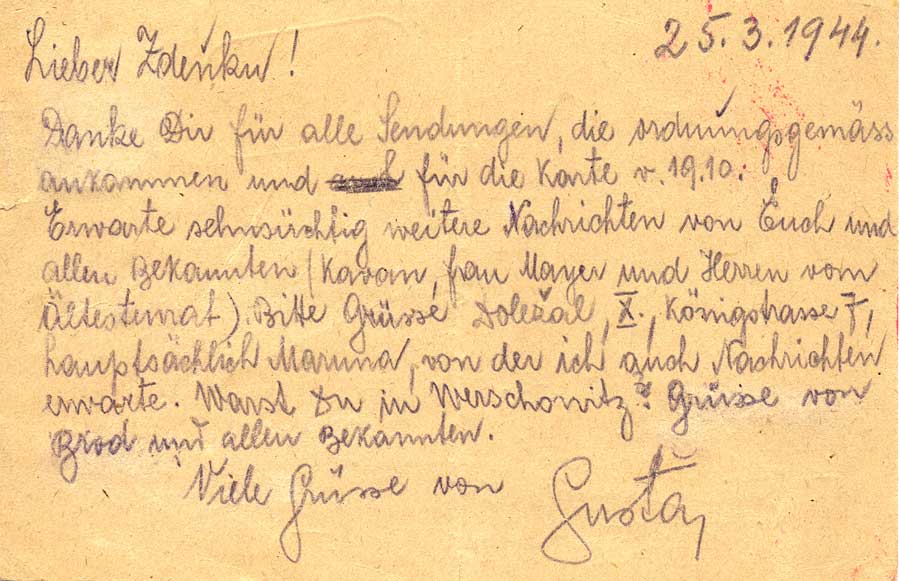 25.3.1944.
Lieber Zdenku!
Danke Dir für alle Sendungen, die ordnungsgemäss
ankammen und für die Karte v. 19.10.
Erwarte sehnsüchtig weitere Nachrichten von Euch und
allen Bekannten (Kavan, frau Mayer und Herren vom
Ältestenrat). Bitte Grüsse Doležal, X., Königstrasse 7,
hauptsächlich Maruna, von der ich auch Nachrichten
erwarte. Warst Du in Werschowitz? Grüsse von
Brod und allen Bekannten.
Viele Grüsse von Gusta